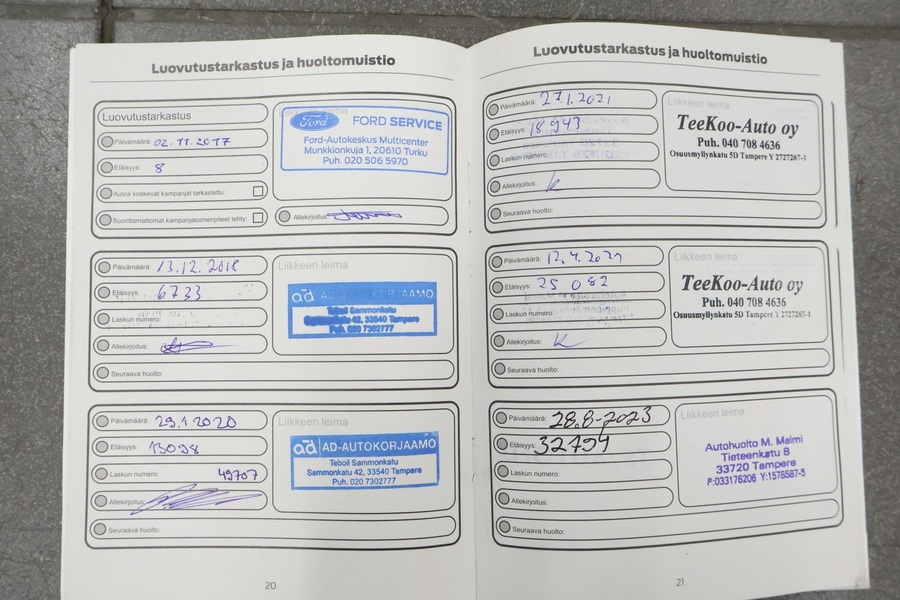 Luovutustarkastus ja huoltomuistio
Luovutustarkastus
Päivämäärä: 02.11.2017
Etäisyys: 8
Autoa koskevat kampanjat tarkastettu:
Suorittamattomat kampanjatoimenpiteet tehty:
Liikkeen leima
Ford FORD SERVICE
Ford-Autokeskus Multicenter
Munkkionkuja 1, 20610 Turku
Puh. 020 506 5970
Allekirjoitus:
Päivämäärä: 13.12.2018
Etäisyys: 6733
Laskun numero:
Allekirjoitus:
Seuraava huolto:
Liikkeen leima
ad AD-AUTOKORJAAMO
Teboil Sammonkatu
Sammonkatu 42, 33540 Tampere
Puh. 020 7302777
Päivämäärä: 29.1.2020
Etäisyys: 13098
Laskun numero: 49707
Allekirjoitus:
Seuraava huolto:
Liikkeen leima
ad AD-AUTOKORJAAMO
Teboil Sammonkatu
Sammonkatu 42, 33540 Tampere
Puh. 020 7302777
20
Luovutustarkastus ja huoltomuistio
Päivämäärä: 27.1.2021
Etäisyys: 18943
Laskun numero:
Allekirjoitus:
Seuraava huolto:
Liikkeen leima
TeeKoo-Auto oy
Puh. 040 708 4636
Osuusmyllynkatu 5D Tampere Y 2727267-1
Päivämäärä: 12.4.2021
Etäisyys: 25 082
Laskun numero:
Allekirjoitus:
Seuraava huolto:
Liikkeen leima
TeeKoo-Auto oy
Puh. 040 708 4636
Osuusmyllynkatu 5D Tampere Y 2727267-1
Päivämäärä: 28.8-2023
Etäisyys: 32794
Laskun numero:
Allekirjoitus:
Seuraava huolto:
Liikkeen leima
Autohuolto M. Malmi
Tieteenkatu 8
33720 Tampere
P:033176206 Y:1578587-5
21